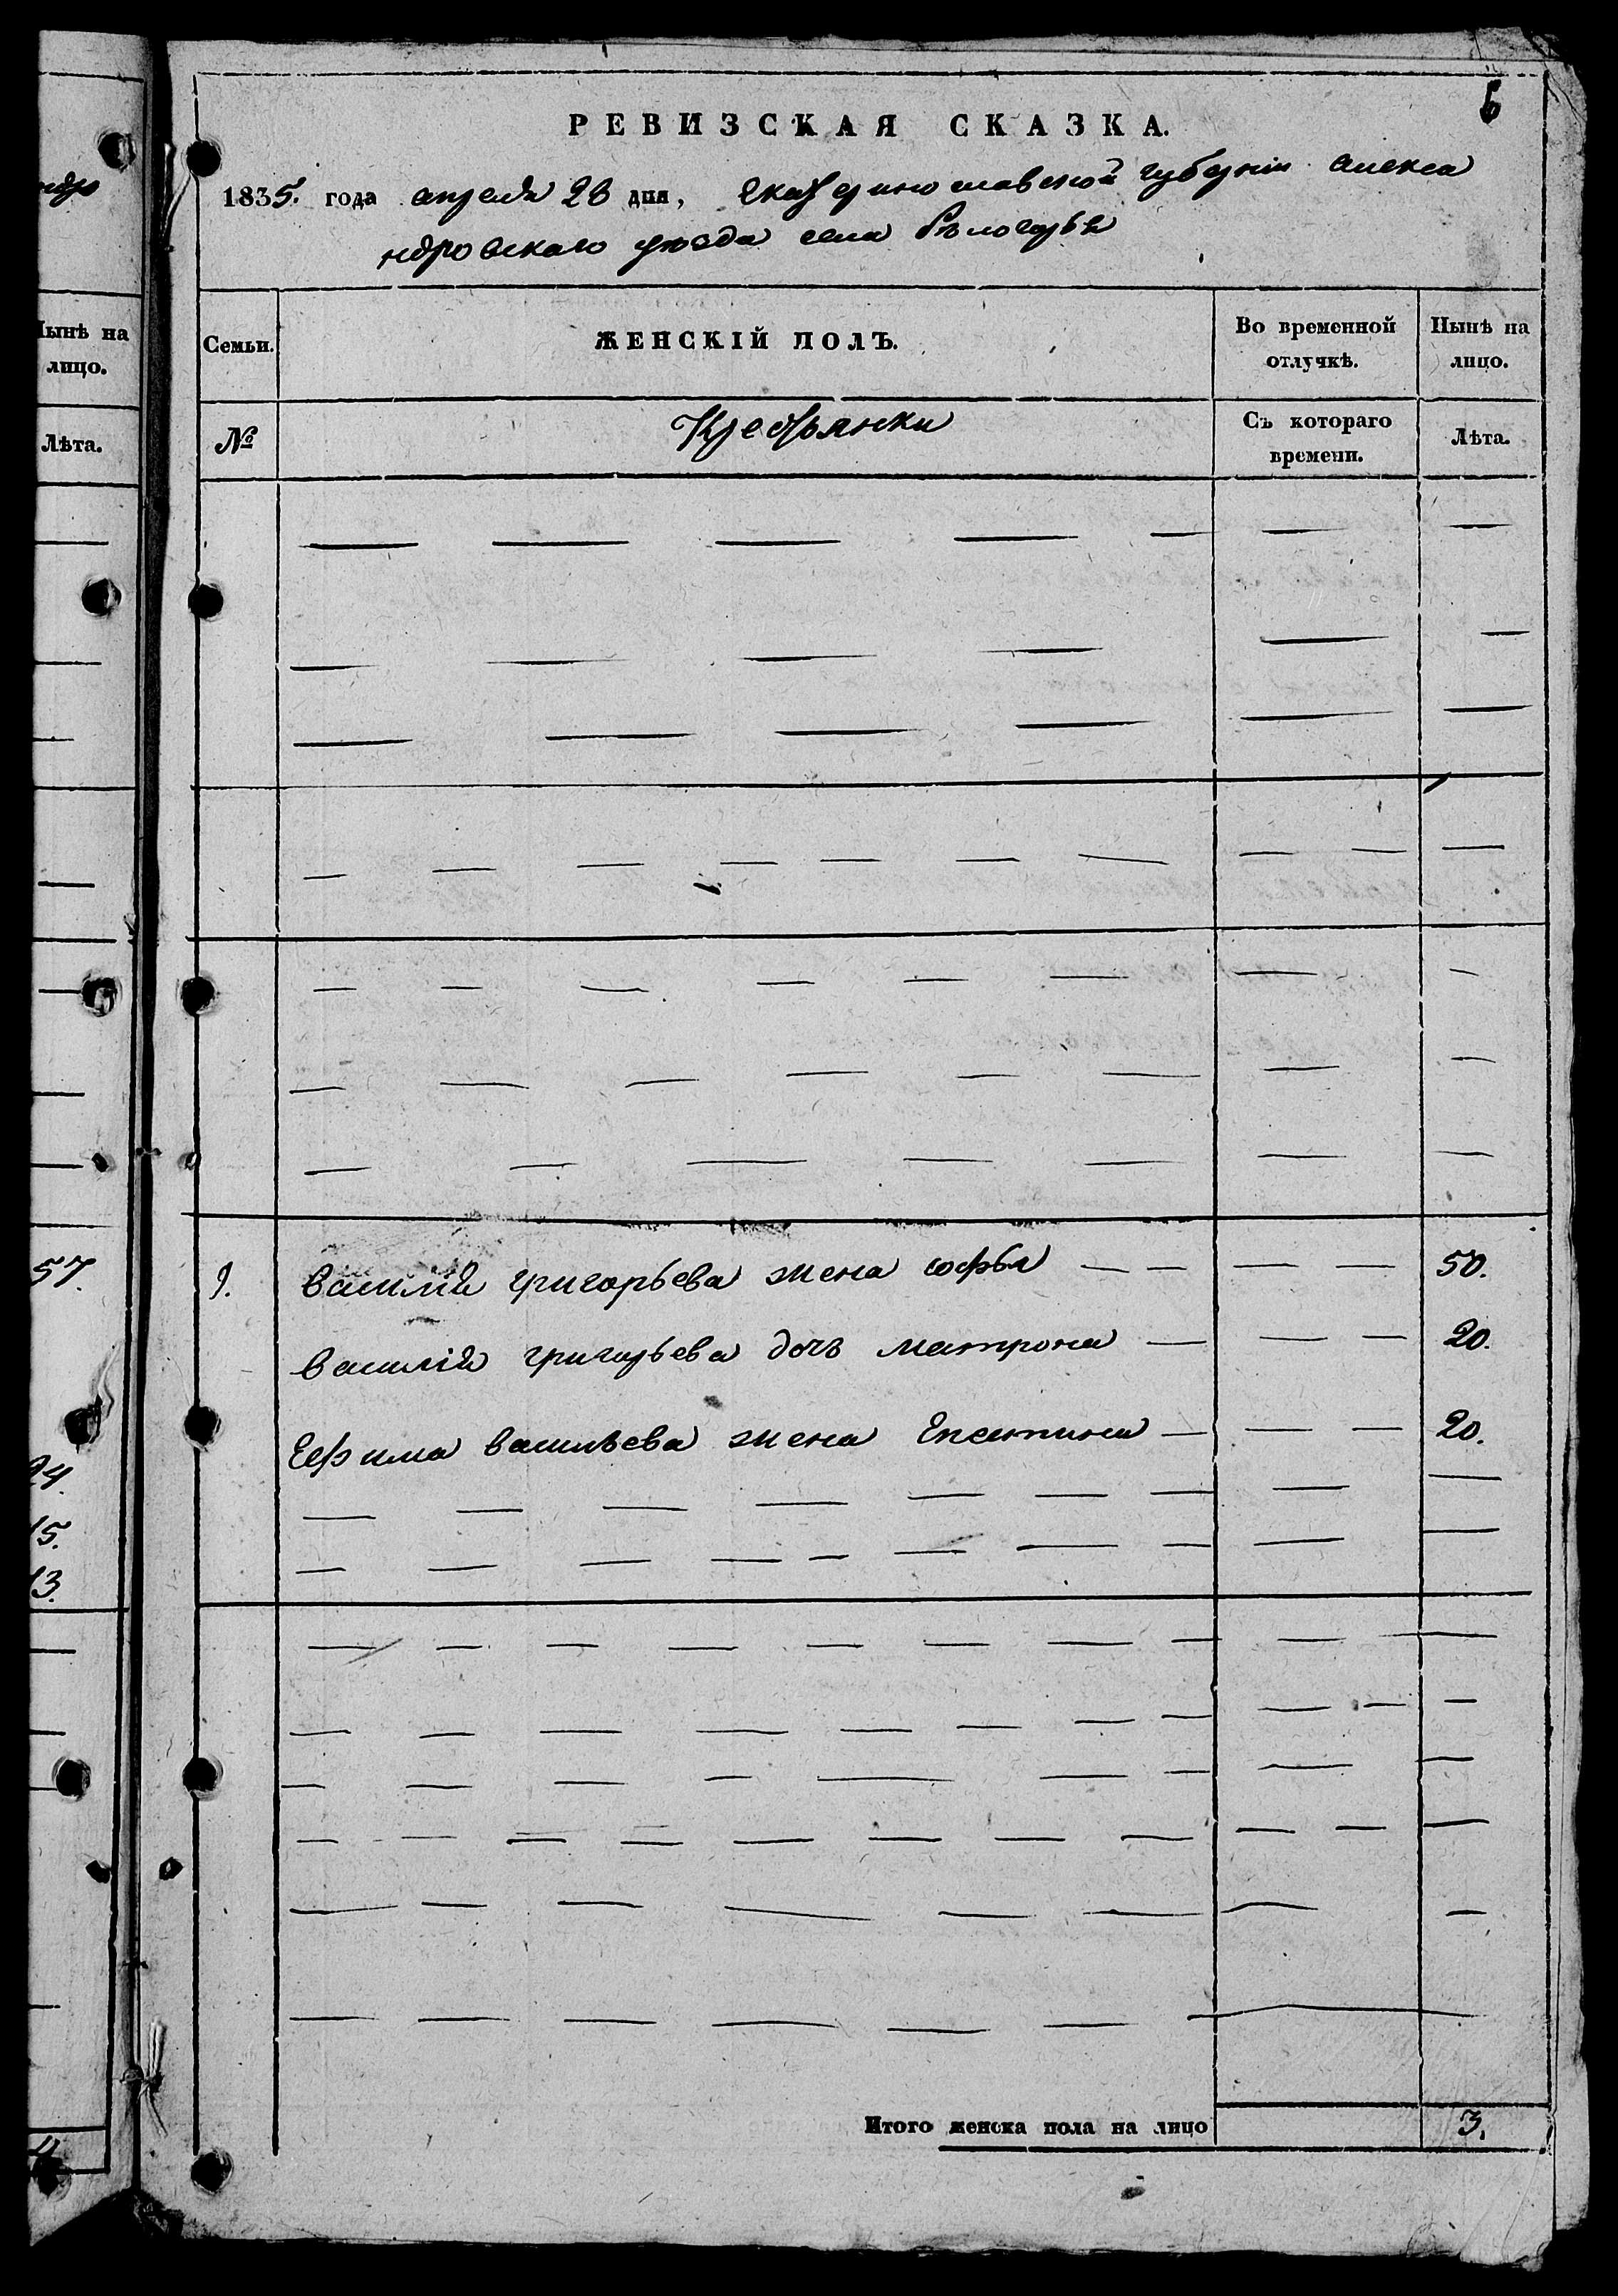 6
РЕВИЗСКАЯ СКАЗКА.
1835. года апреля 28 дня, Екатеринославской губернии алекса
ндровскаго уюзда села Бѣлогорья
Нынѣ на
лицо.
Лѣта.
57.
24.
15.
13.
4
Семьи. ЖЕНСКІЙ ПОЛЪ. Во временной отлучкѣ. Нынѣ на лицо.
№ Крестьянки Съ котораго времени. Лѣта.
9. василій григорьева жена софья 50.
василій григорьева дочъ матрона 20.
Ефима васильева жена 20.
Итого женска пола на лицо 3.